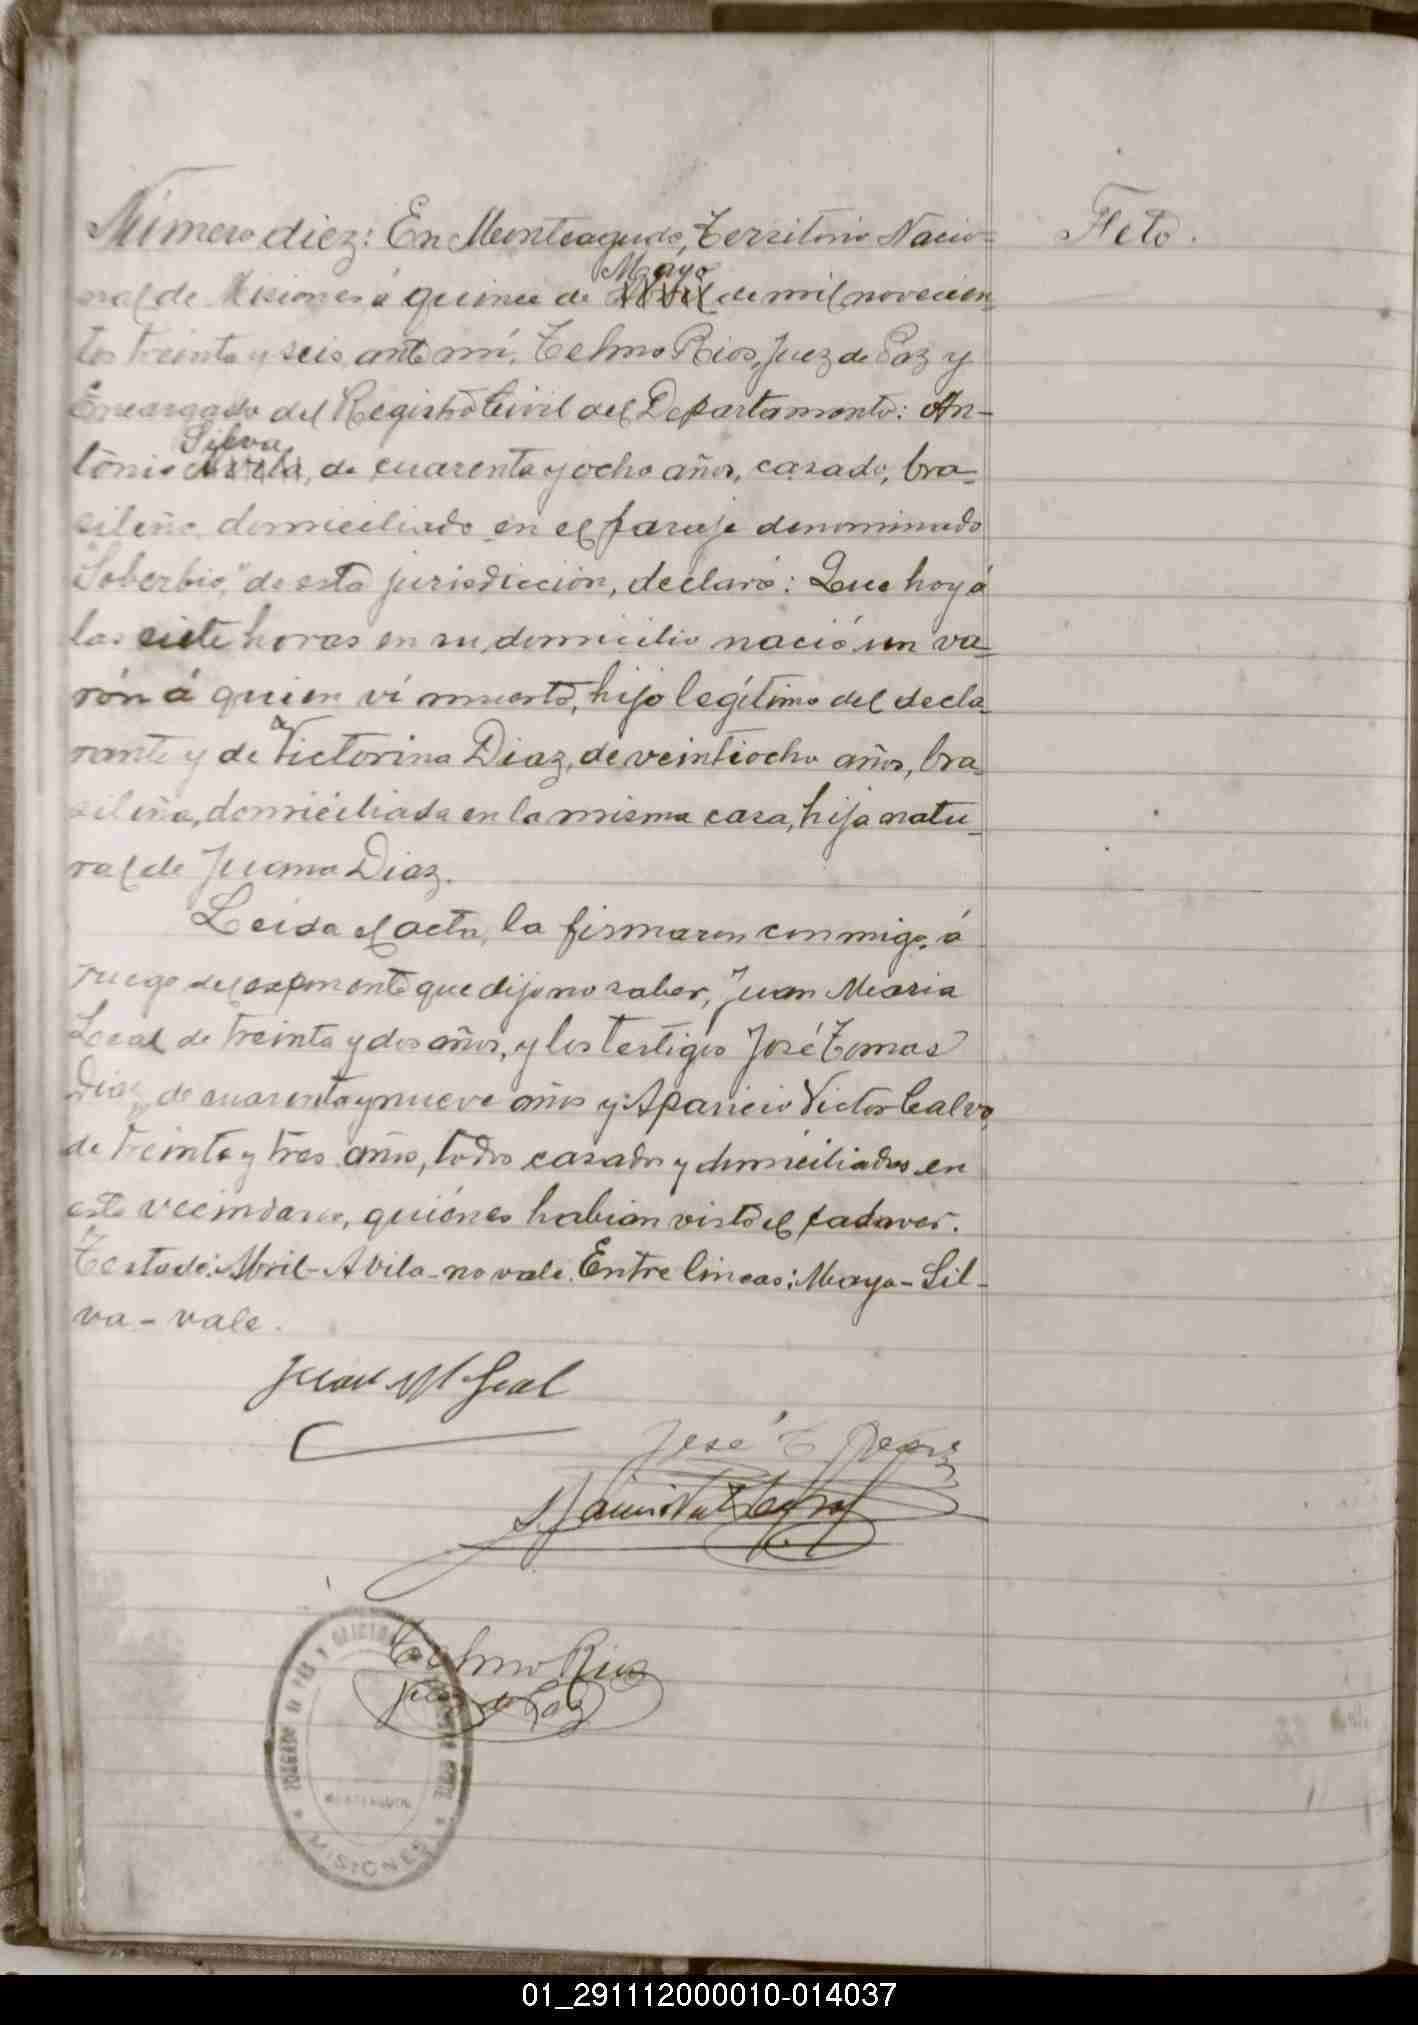 Número diez: En Monteagudo, Territorio Nacio=
Feto.
Mayo
nal de Misiones á quince de Abril de mil novecien=
tos treinta y seis, ante mí, Telmo Rios, Juez de Paz y
Encargado del Registro Civil del Departamento: An-
Silva
tonio Avila, de cuarenta y ocho años, casado, bra=
sileño, domiciliado en el paraje denominado
"Soberbio," de esta jurisdicción, declaró: Que hoy á
las siete horas en su domicilio nació un va=
rón á quien ví muerto, hijo legítimo del decla=
rante y de Victorina Diaz, de veintiocho años, bra=
sileña, domiciliada en la misma casa, hija natu=
ral de Juana Diaz.
Leida el acta, la firmaron conmigo, á
ruego del exponente que dijo no saber, Juan Maria
Leal de treinta y dos años, y los testigos José Tomas
Diaz, de cuarenta y nueve años y Aparicio Victor Calvo,
de treinta y tres años, todos casados y domiciliados en
este vecindario, quiénes habian visto el cadaver.
Testado: Abril - Avila - no vale. Entre lineas: Mayo - Sil-
va - vale.
Juan M Leal
José T
Telmo Rios
Juez de Paz
JUZGADO DE PAZ Y
MONTEAGUDO
MISIONES
01_291112000010-014037